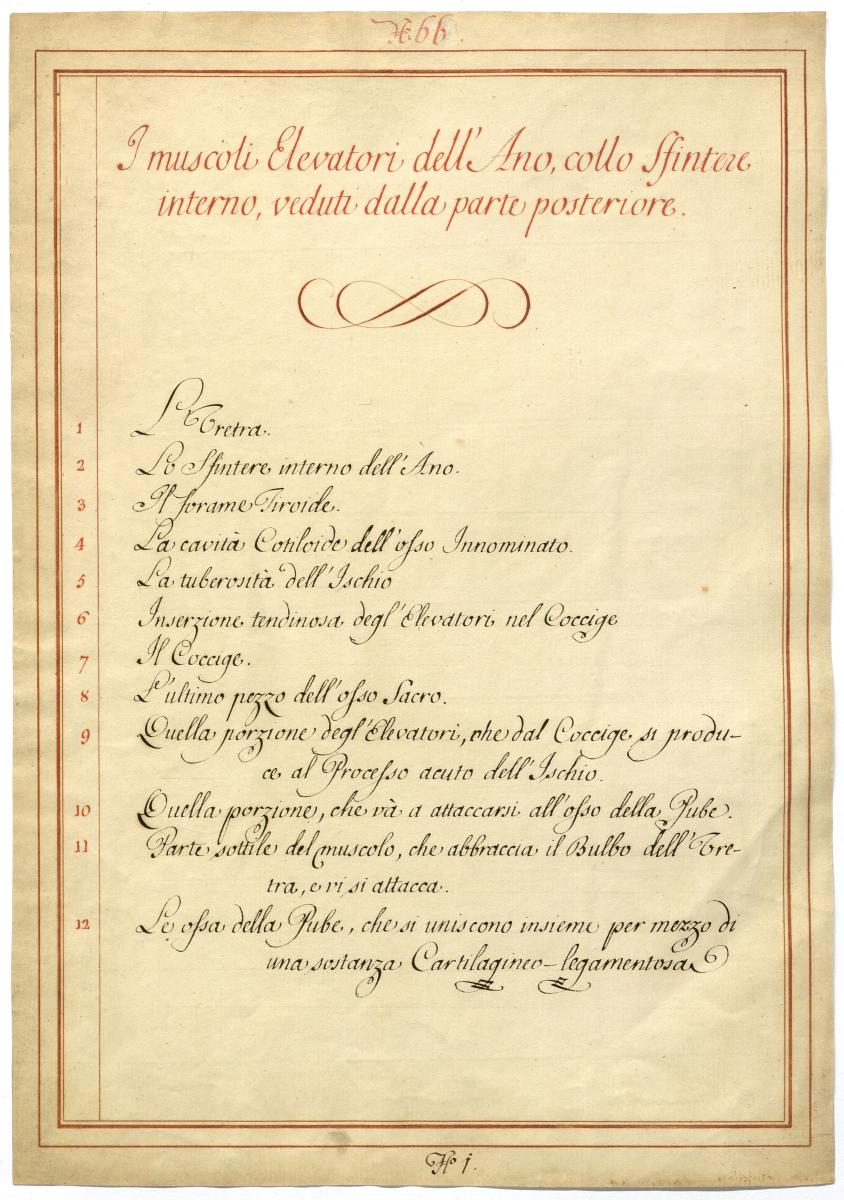 N.º 66.
I muscoli Elevatori dell'Ano, collo Sfintere
interno, veduti dalla parte posteriore.
1 L'Uretra.
2 Lo Sfintere interno dell'Ano.
3 Il forame Tiroide.
4 La cavità Cotiloide dell'osso Innominato.
5 La tuberosità dell'Ischio
6 Inserzione tendinosa degl'Elevatori nel Coccige
7 Il Coccige.
8 L'ultimo pezzo dell'osso Sacro.
9 Quella porzione degl'Elevatori, che dal Coccige si produ-
ce al Processo acuto dell'Ischio.
10 Quella porzione, che và a attaccarsi all'osso della Pube.
11 Parte sottile del muscolo, che abbraccia il Bulbo dell'Ure-
tra, e vi si attacca.
12 Le ossa della Pube, che si uniscono insieme per mezzo di
una sostanza Cartilagineo-legamentosa